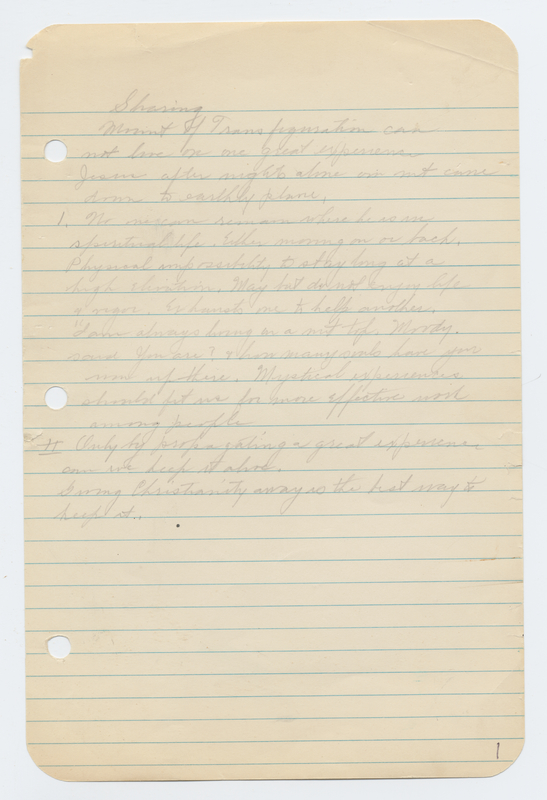 Sharing
Mount of Transfiguration can
not live on one great experience
Jesus after nights alone on mt came
down to earthly plane.
1. No one can remain where he is in
spiritual life. Either moving on or back.
Physical impossibility to stay long at a
high elevation. May but do not enjoy life
& vigor. Exhausts one to help another.
"I am always living on a mt top. Moody
said You are? & how many souls have you
won up there. Mystical experiences
should fit us for more effective work
among people
II Only by propagating a great experience
can we keep it alive.
Giving Christianity away is the best way to
keep it.
1